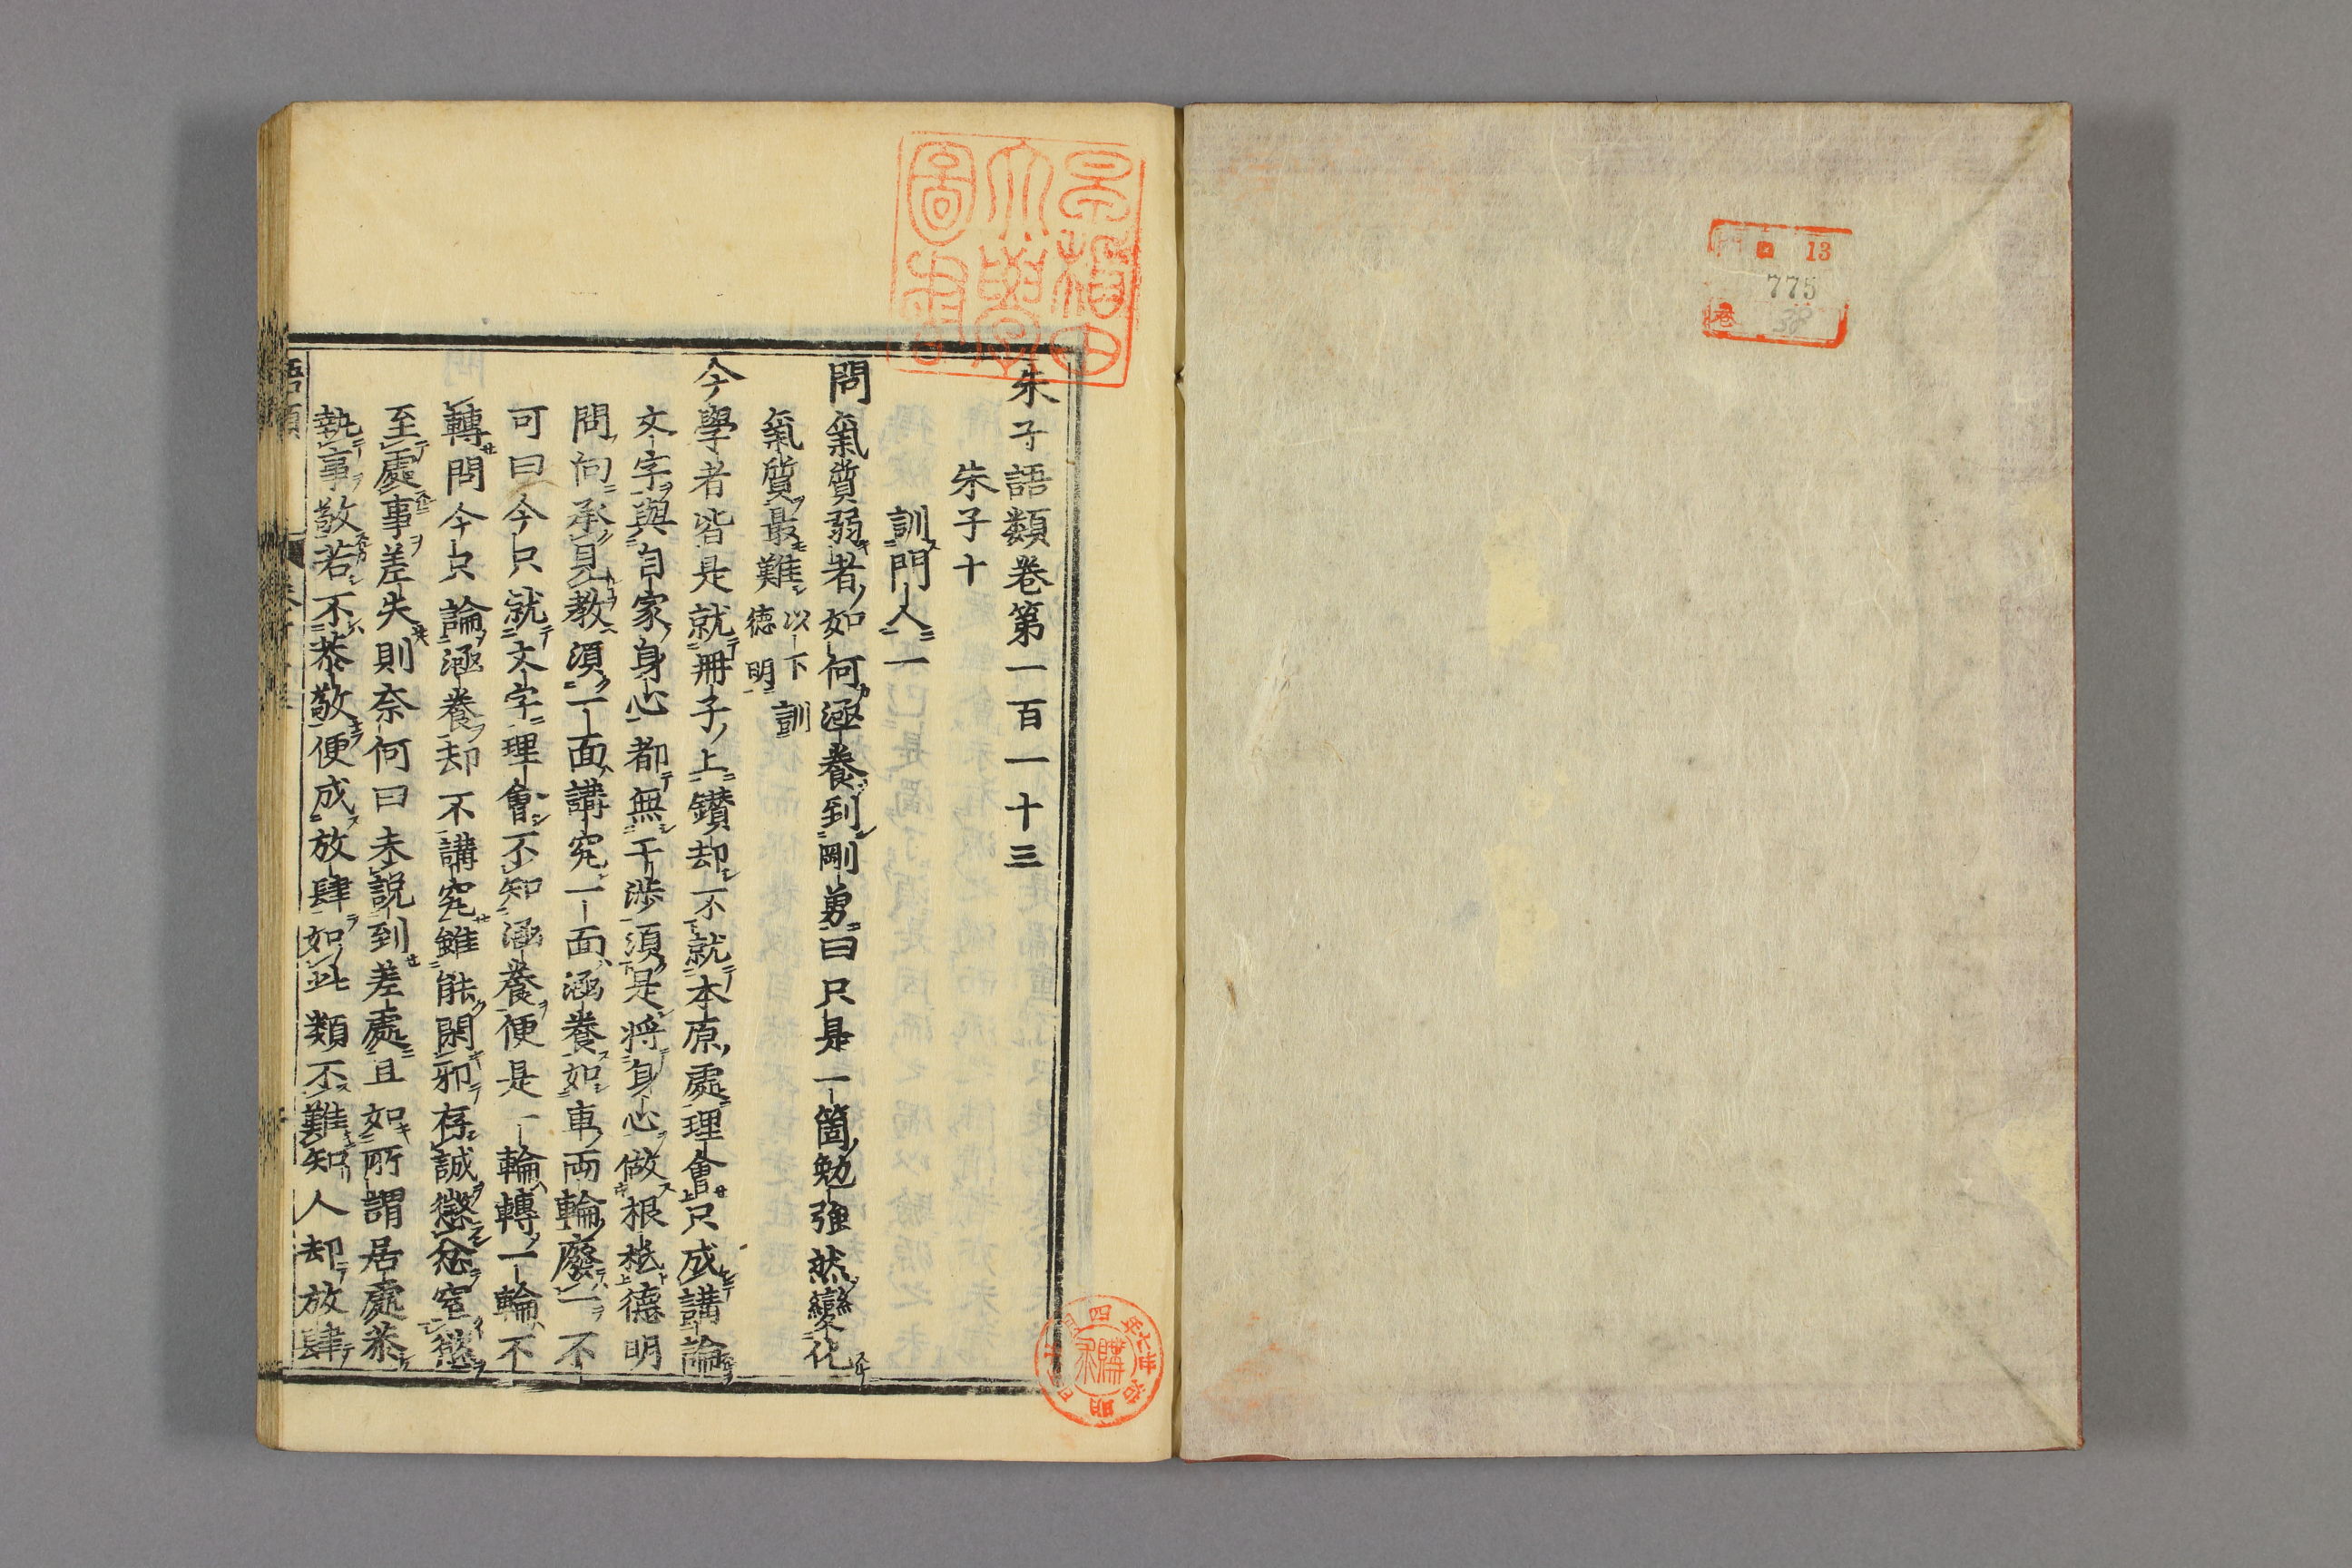 13
775
朱子語類卷第一百一十三
朱子十
訓門人一
問氣質弱者如何涵養到剛勇曰只是一箇勉強然變化
氣質最難以下訓德明
今學者皆是就冊子上鑚却不就本原處理會只成講論
文字與自家身心都無干涉須是將身心做根柢德明
問向承見教須一面講究一面涵養如車兩輪廢一不
可曰今只就文字理會不知涵養便是一輪轉一輪不
轉問今只論涵養却不講究雖能閑邪存誠懲忿窒慾
至處事差失則奈何曰未說到差處且如所謂居處恭
執事敬若不恭敬便成放肆如此類不難知人却放肆
早稻田大學圖書